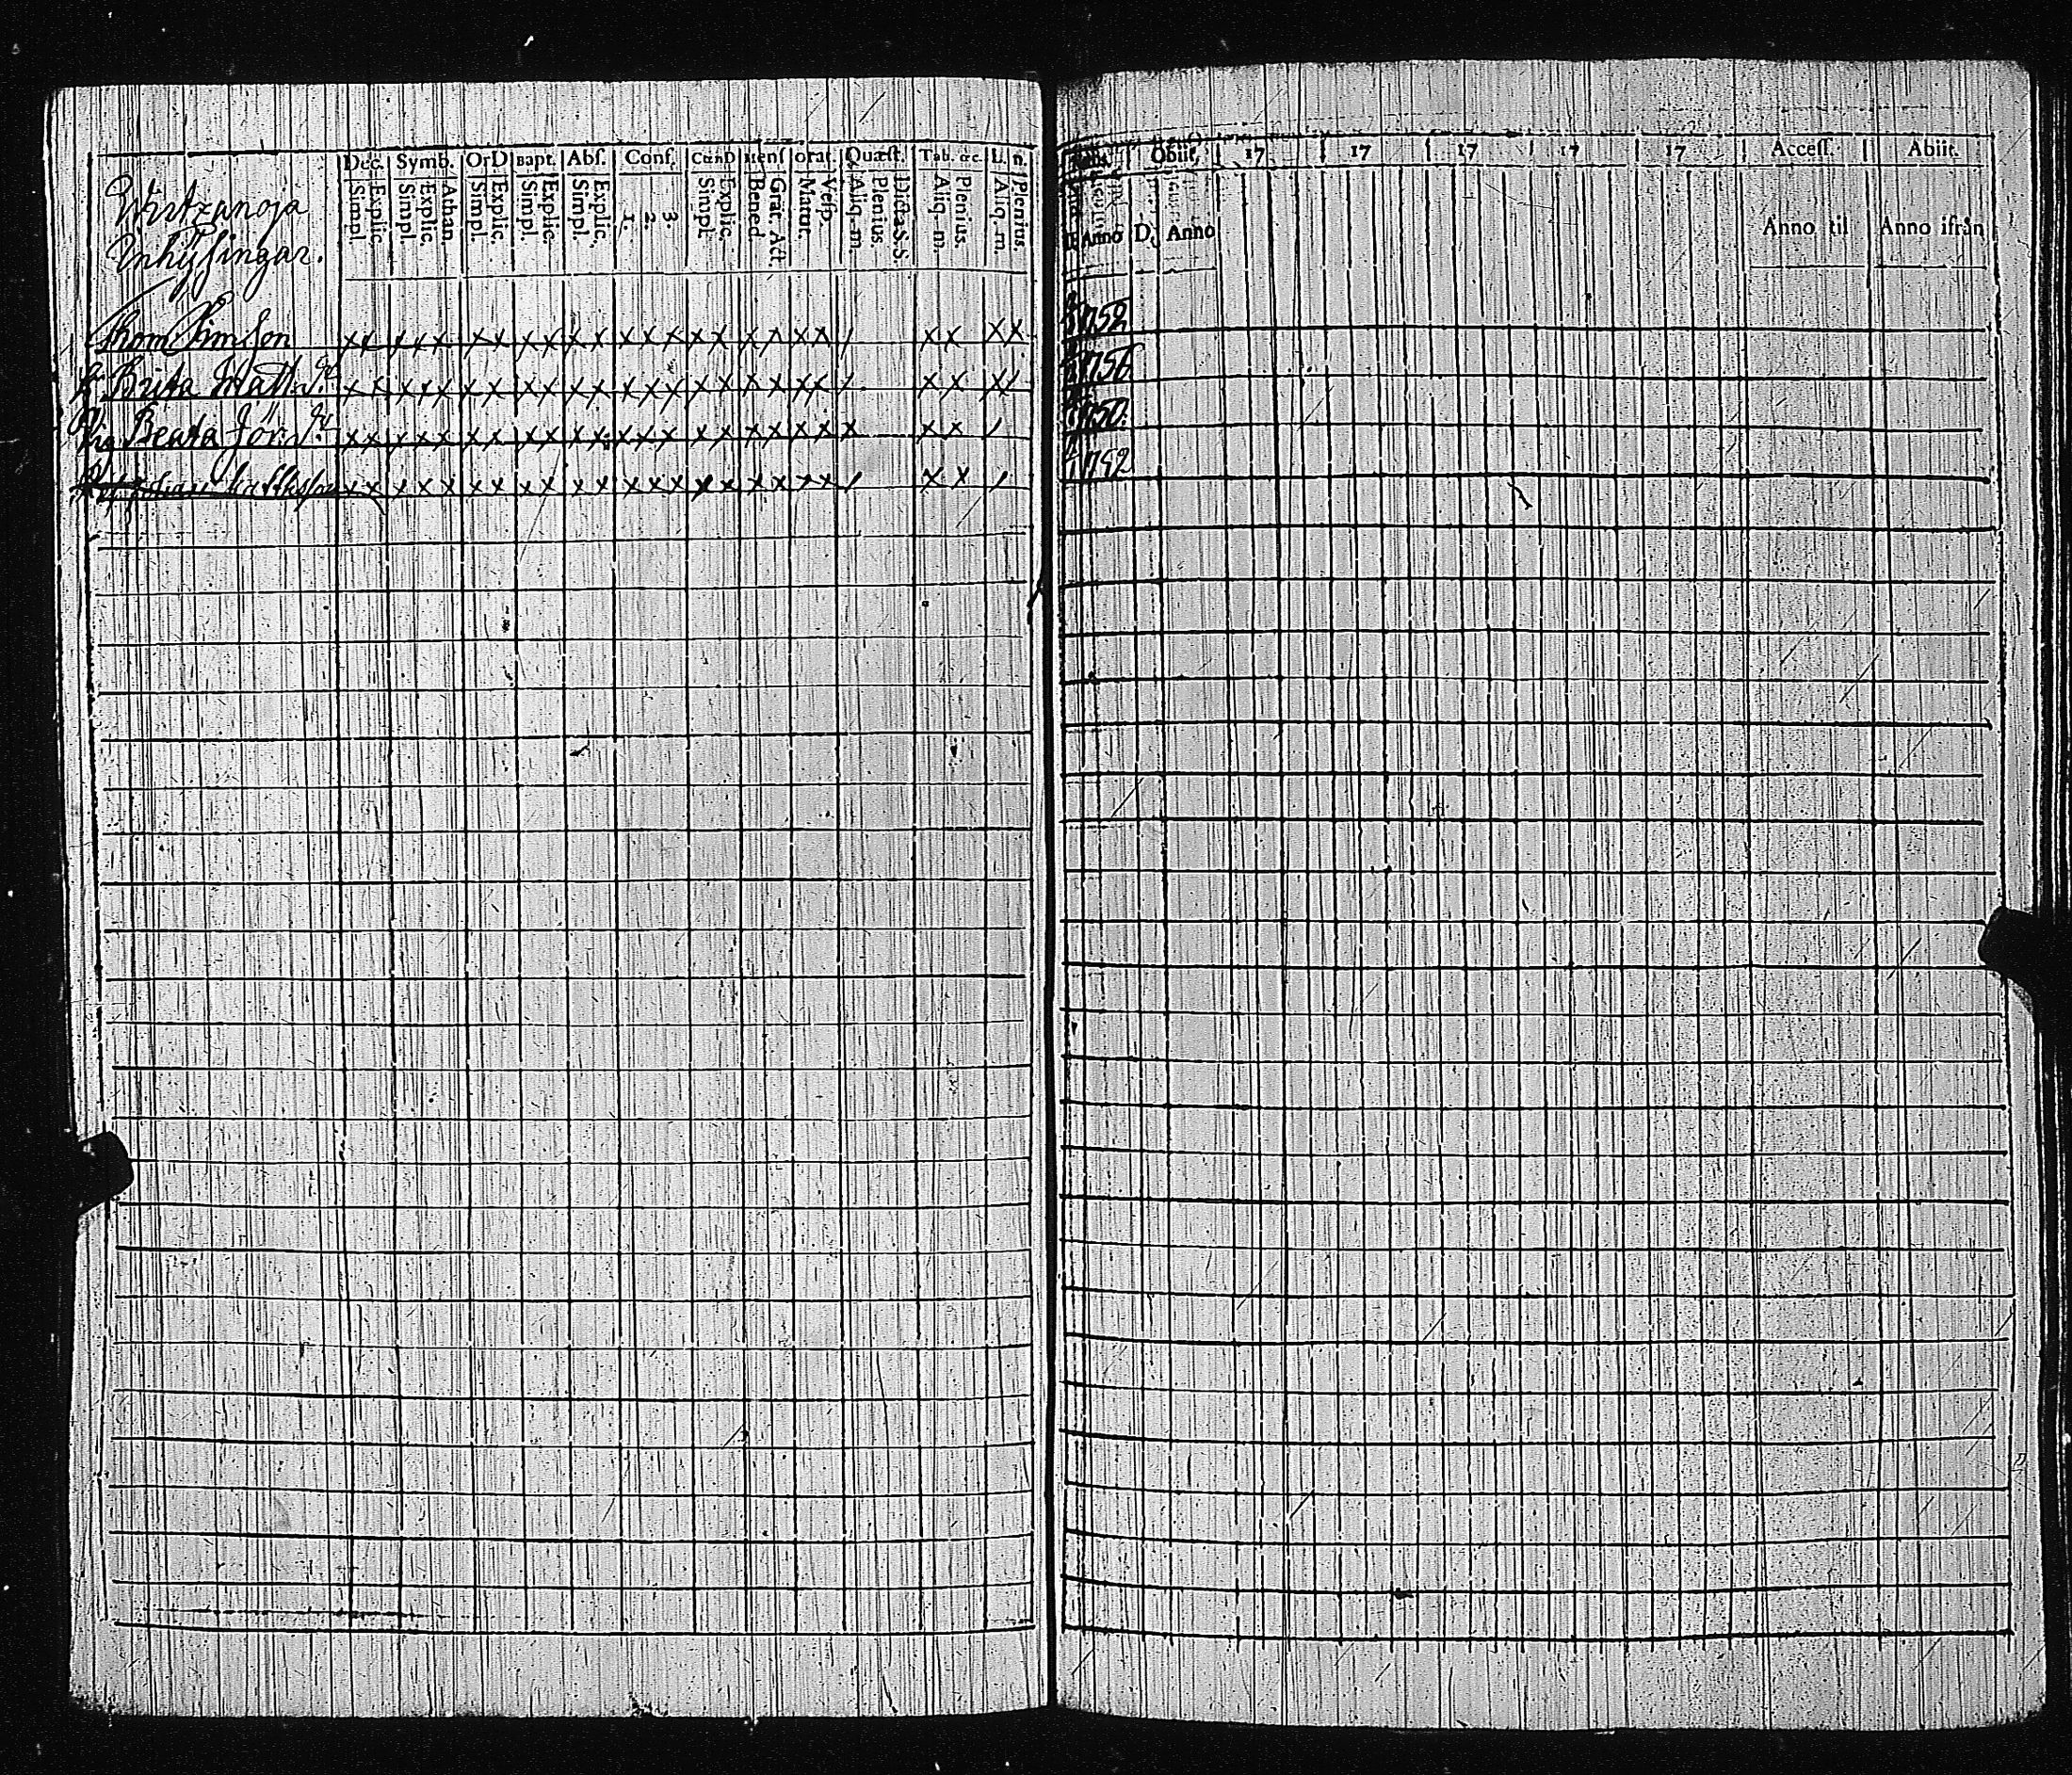 Dec. Symb. OrD Bapt. Abſ. Conf. CœnD Menſ Orat. Quæſt. Tab. œc. L. n.
Simpl. Explic. Simpl. Explic. Athan. Simpl. Explic. Simpl. Explic. Simpl. Explic. 1. 2. 3. Simpl Explic. Bened. Grat. Act Matut. Veſp. Aliq. m. Plenius Dicta S.S. Aliq. m. Plenius. Aliq. m. Plenius.
Inhyſingar.
Thom Simſon x x x x x x x x x x x x x x x x x x x / x x x x
Brita Matts dr x x x x x x x x x x x x x x x x x x x / x x x /
Beata Jör dr x x x x x x x x x x x x x x x x x x x x x x /
x x x x x x x x x x x x x x x x x x / x x /
Obiit. 17 17 17 17 17 Acceſſ. Abiit.
Anno D. Anno Anno til Anno ifrån
1752
1756
1750.